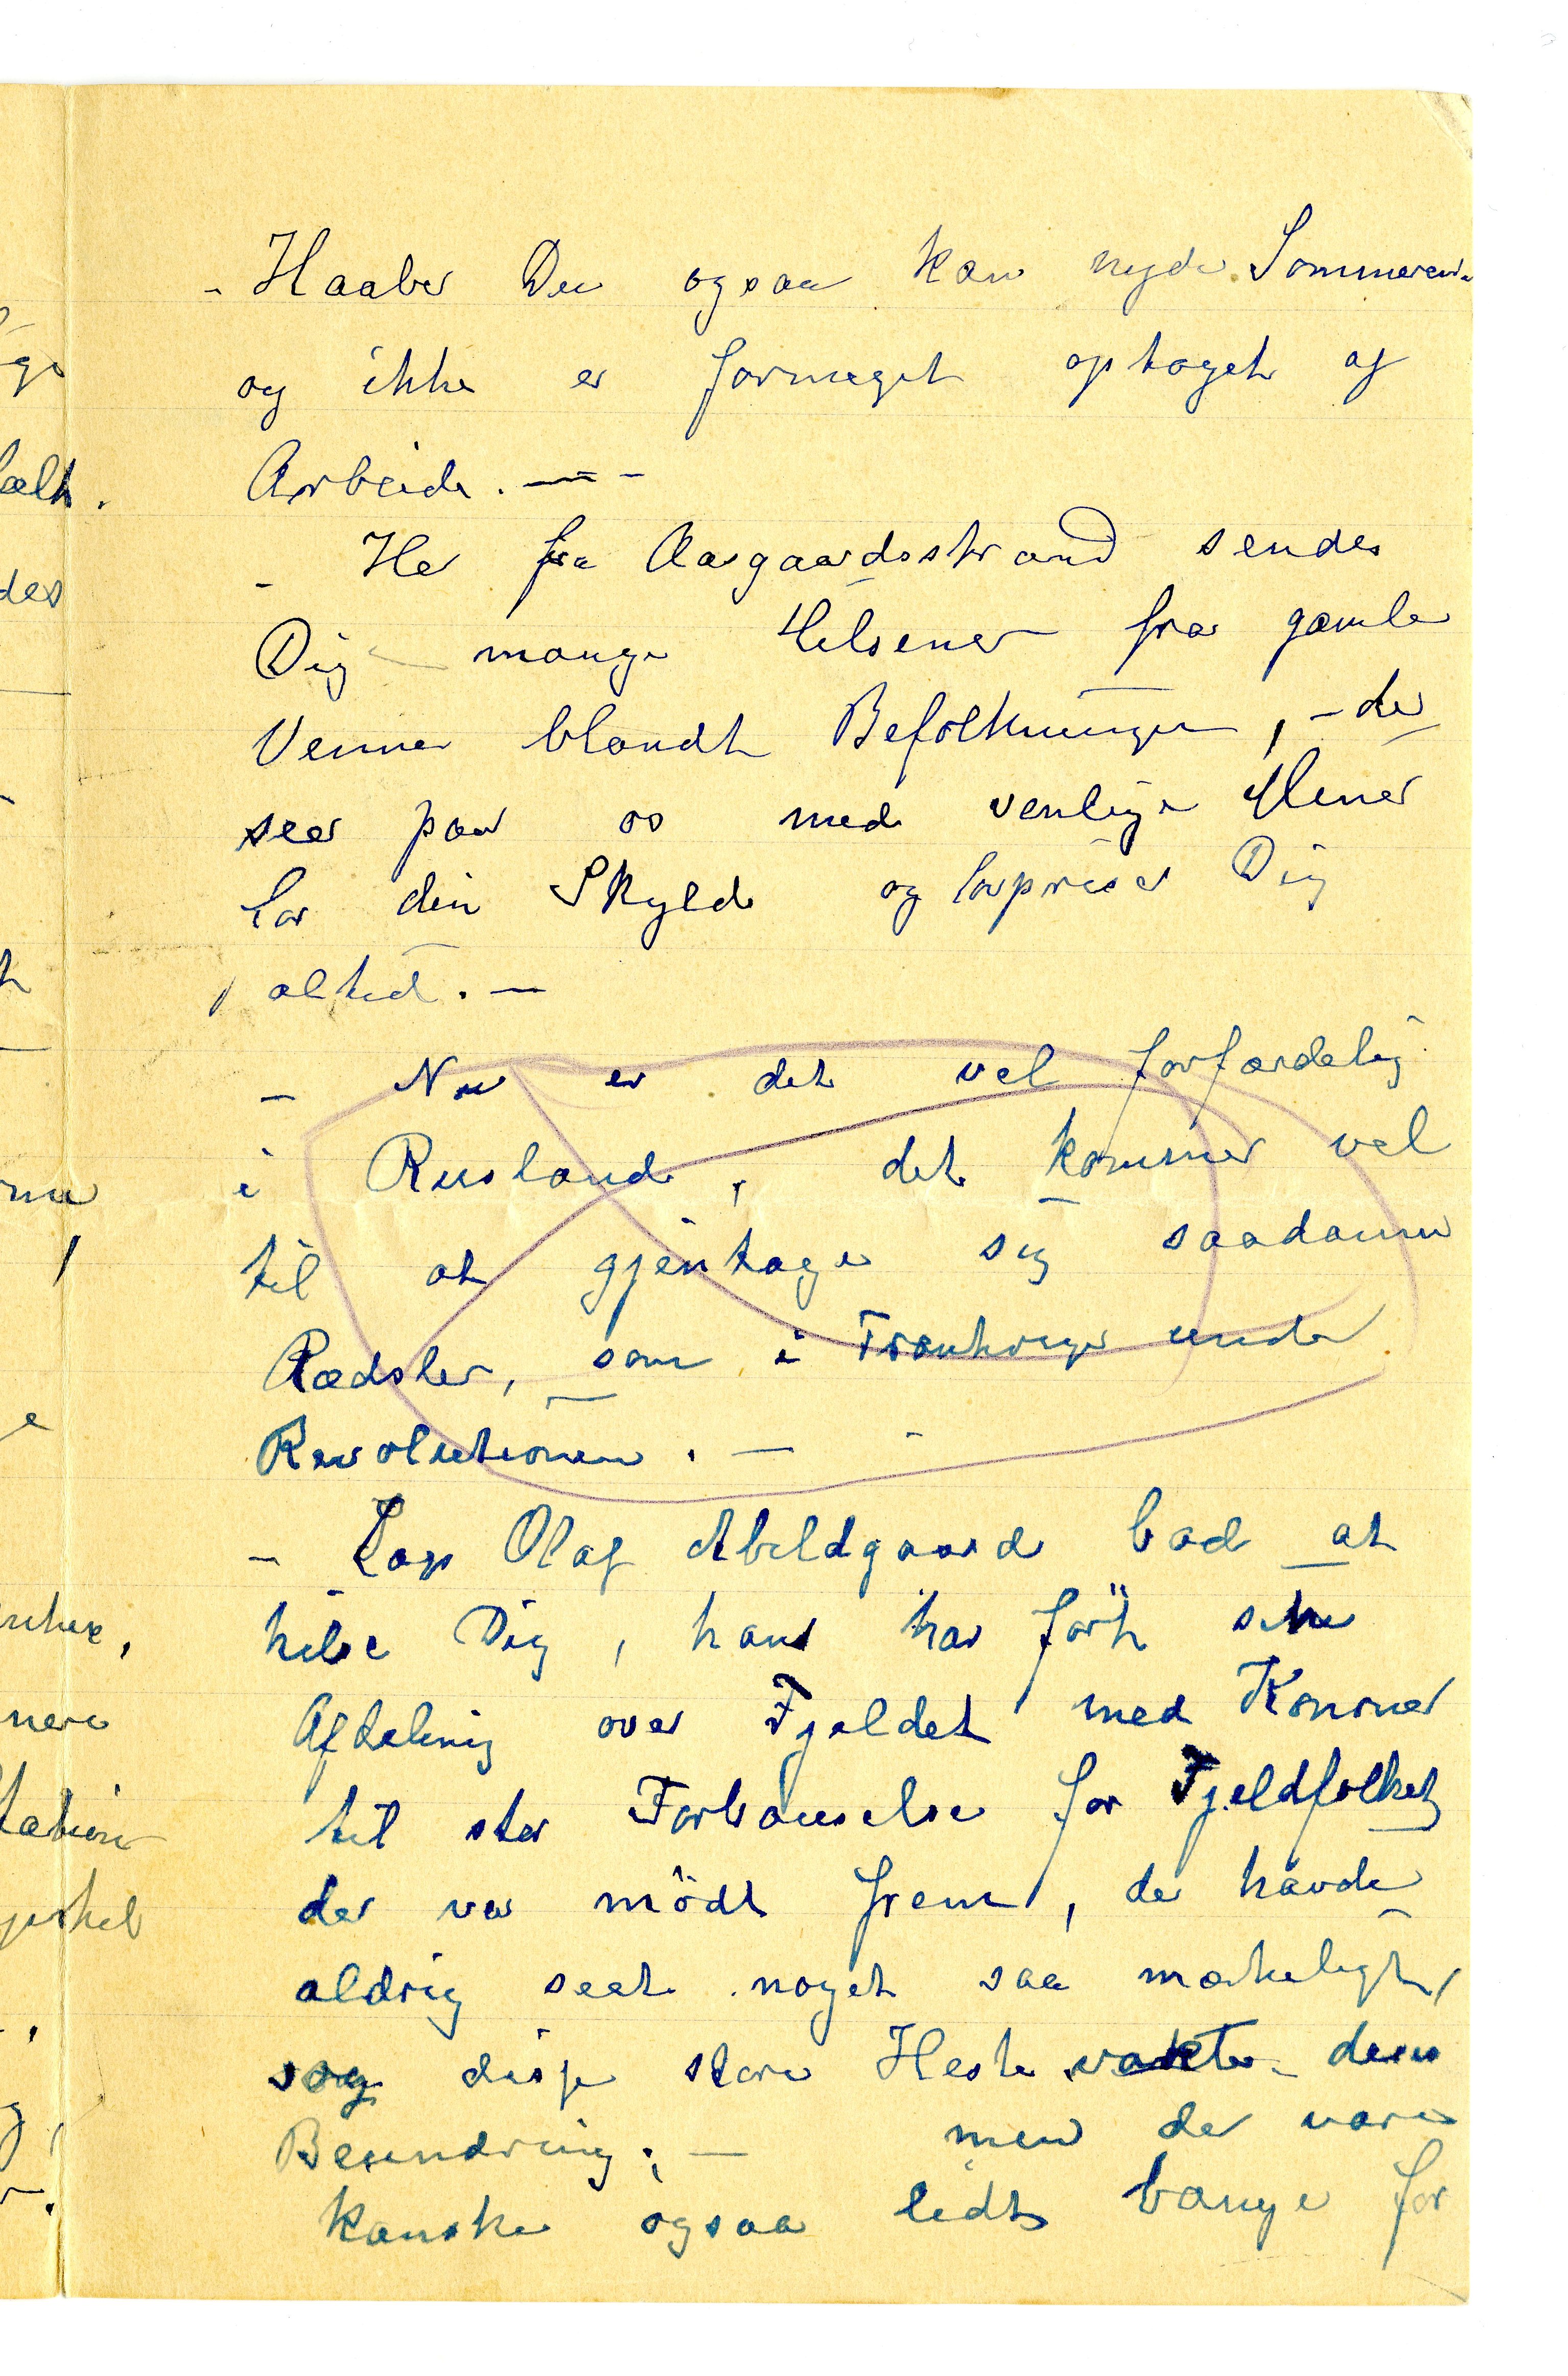 - Haaber Du ogsaa kan nyde Sommeren
og ikke er formeget optaget af
Arbeide. — -
- Her fra Aasgaardsstrand sendes
Dig mange Hilsener fra gamle
Venner blandt Befolkningen, - der
seer paa os med venlige Miner
for din Skyld og lovpriser Dig
altid. —
- Nu er det vel forfærdelig
i Rusland, det kommer vel
til at gjentage sig saadanne
Rædsler, som i Frankrige under
Revolutionen. — -
- Kap Olaf Abildgaard bad at
hilse Dig, han har fört sin
Afdeling over Fjeldet med Kanoner
til stor Forbauselse for Fjeldfolket
der var mödt frem, de havde
aldrig seet noget saa mærkeligt,
og disse store Heste vakte dem
Beundring; — men de vare
kanske ogsaa lidt bange for
ge
des
nere